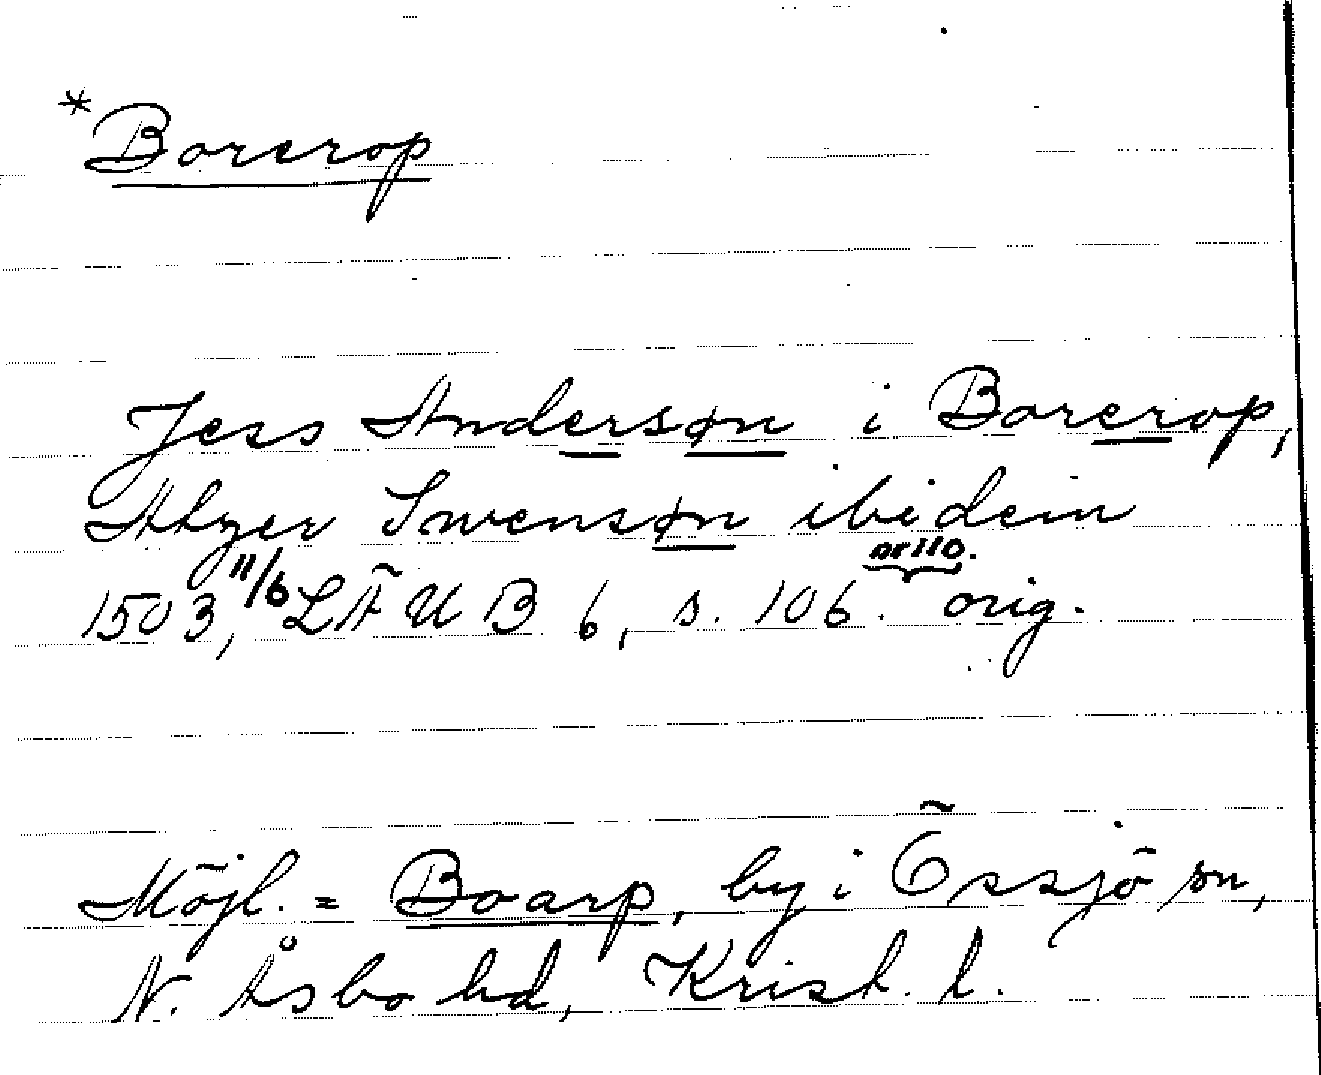 *Borerop
Jess Andersøn i Borerop,
Atzer Swensøn ibidem
nr 110.
1503, 11/6 LÄUB 6, s. 106. orig.
Möjl. = Boarp, by i Össjö sn,
N. Åsbo hd, Krist. l.